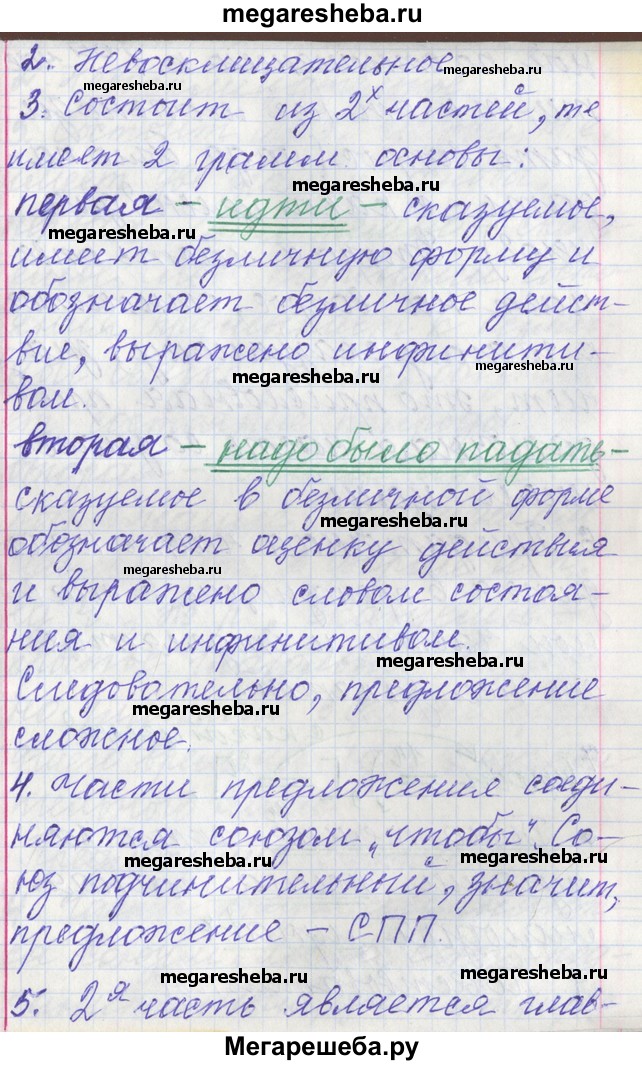 megaresheba.ru
2. Невосклицательное
megaresheba.ru
megaresheba.ru
3. Состоит из 2х частей, те
имеет 2 грамм. основы:
megaresheba.ru
первая – идти – сказуемое,
megaresheba.ru
имеет безличную форму и
обозначает безличное дейст-
вие, выражено инфинити-
megaresheba.ru
megaresheba.ru
вом.
вторая – надо было падать –
сказуемое в безличной форме
megaresheba.ru
обозначает оценку действия
megaresheba.ru
и выражено словом состоя-
ния и инфинитивом.
megaresheba.ru
Следовательно, предложение
megaresheba.ru
сложное.
4. Части предложения соеди-
няются союзом „чтобы“. Со-
megaresheba.ru
megaresheba.ru
юз подчинительный, значит,
предложение – СПП.
megaresheba.ru
megaresheba.ru
5. 2я часть является глав-
Мегарешеба.ру